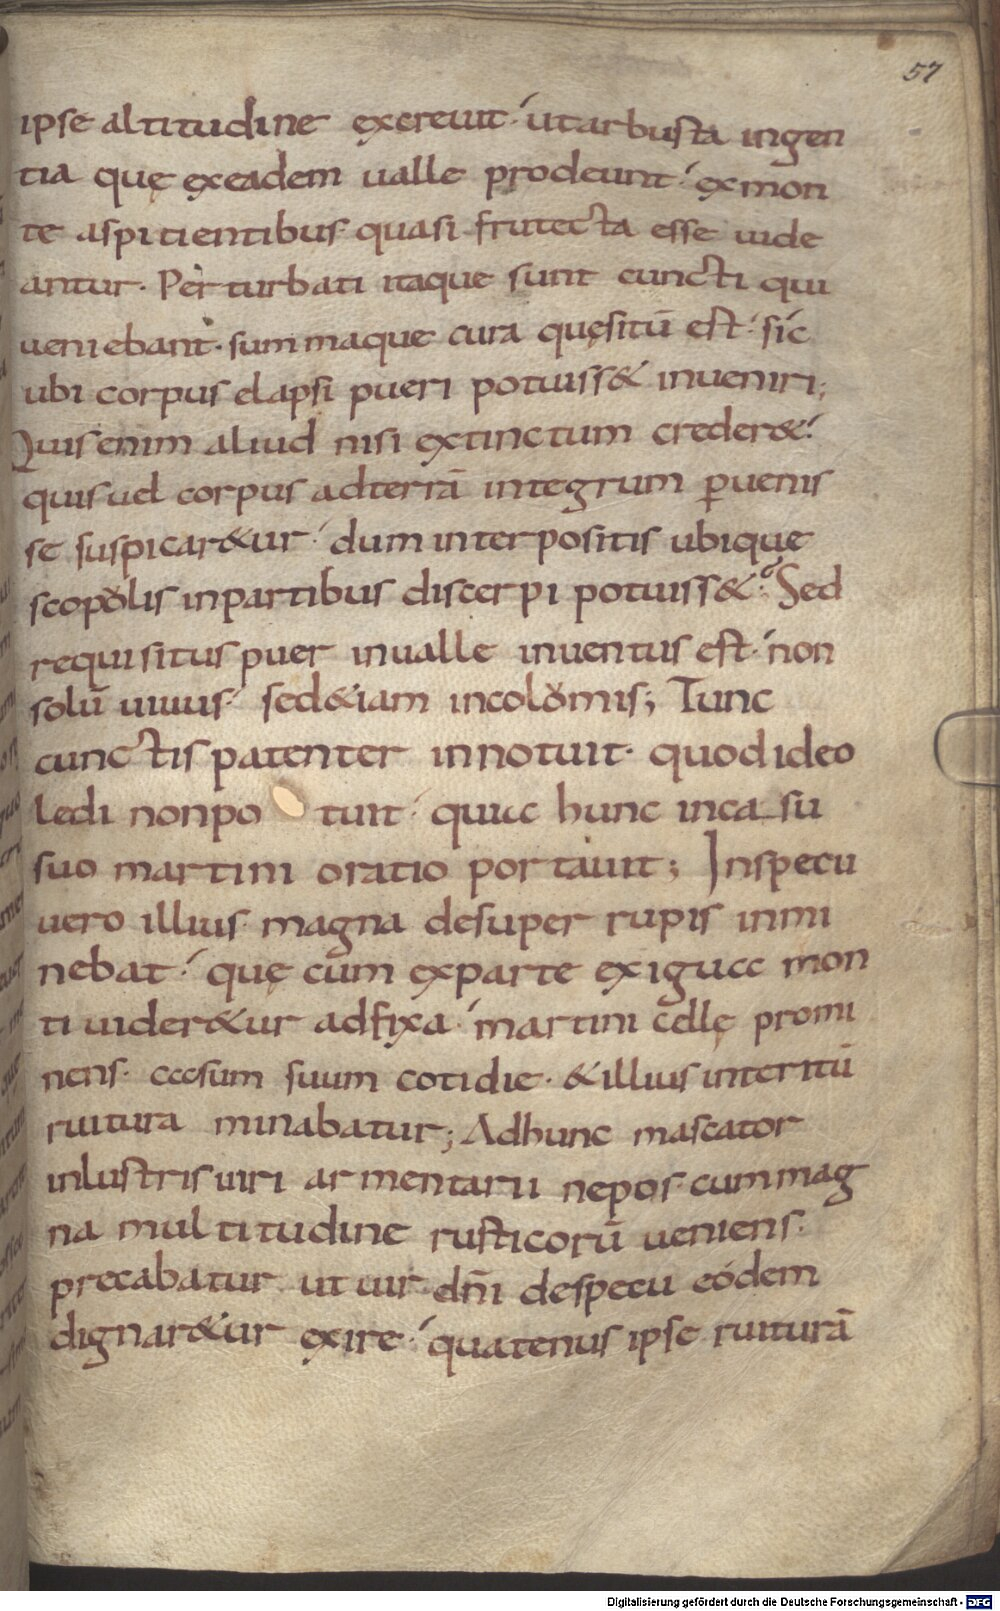 57
ipse altitudine excreuit·́ ut arbusta ingen
tia quę ex eadem ualle prodeunt·́ ex mon
te aspitientibus· quasi frutecta esse uide
antur· Perturbati itaque sunt cuncti qui
ueniebant· summaque cura quęsitū est·́ sic
ubi corpus elapsi pueri potuiss& inueniri;
Quis enim aliud nisi extinctum creder&·́
quis uel corpus ad terrā integrum ꝑuenis
se suspicar&ur·́ dum interpositis ubique
scopolis in partibus discerpi potuiss&· Sed
requisitus puer in ualle inuentus est·́ non
solū uiuus·́ sed &iam incolomis; Tunc
cunctis patenter innotuit· quod ideo
ledi non po tuit·́ quia hunc in casu
suo martini oratio portauit; In specu
uero illius magna desuper rupis inmi
nebat·́ quę cum ex parte exigua mon
ti uider&ur adfixa·́ martini cellę promi
nens· casum suum cotidie· & illius interitū
ruitura minabatur; Ad hunc mascator
inlustris uiri armentarii nepos· cum mag
na multitudine rusticorū ueniens·
precabatur ut uir dn̄i de specu eódem
dignar&ur exire·́ quatenus ipse ruiturā
Digitalisierung gefördert durch die Deutsche Forschungsgemeinschaft - DFG